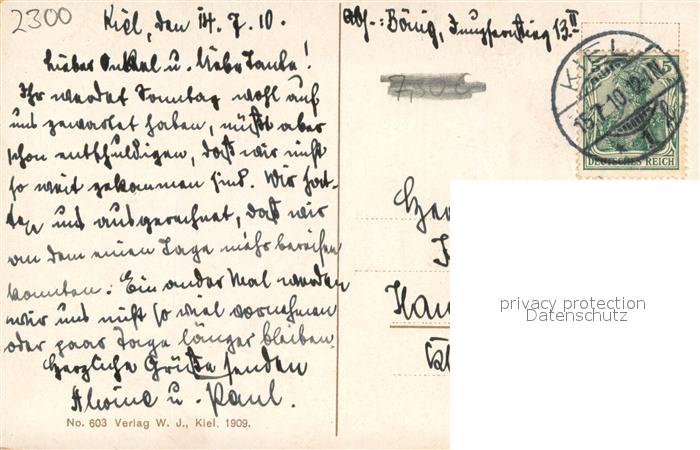 2300
Kiel, den 14. 7. 10.
Lieber Onkel u. liebe Tante!
Ihr werdet Sonntag wohl auf
uns gewartet haben, müßt aber
schon entschuldigen, daß wir nicht
so weit gekommen sind. Wir hat-
ten uns ausgerechnet, daß wir
an dem einen Tage mehr bereisen
konnten. Ein ander Mal werden
wir uns nicht so viel vornehmen
oder paar Tage länger bleiben.
Herzliche Grüße senden
Alwine u. Paul.
No. 603 Verlag W. J., Kiel. 1909.
Abs.: Bönig, Jungfernstieg 13 II
7,500
KIEL
15.7.10.
1
5 5
DEUTSCHES REICH
privacy protection
Datenschutz